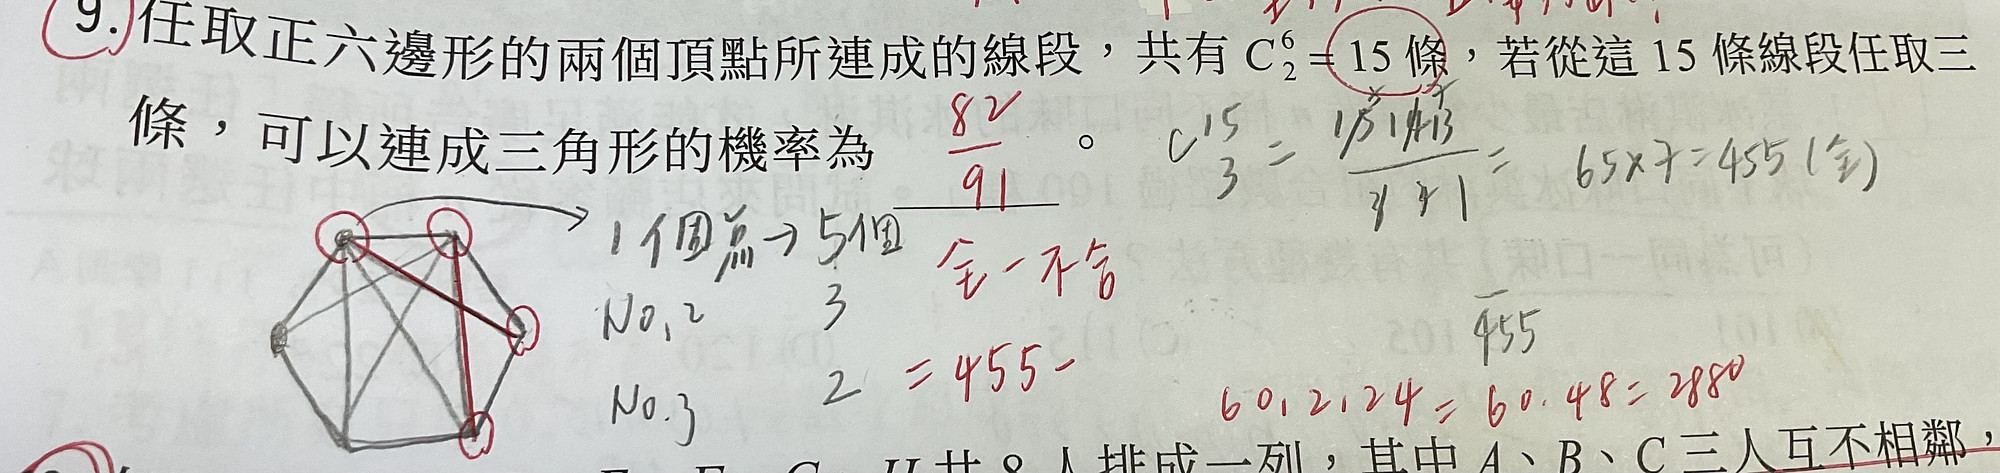 9. 任取正六邊形的兩個頂點所連成的線段，共有 C⁶₂ = 15 條，若從這 15 條線段任取三
條，可以連成三角形的機率為 82/91 。
C¹⁵₃ = 15 14 13 / 3 2 1 = 65×7=455 (全)
1個點→5個
全-不合
No.2 3
No.3 2
=455-
455
60.2.24=60.48=2880
共 8 人排成一列，其中 A、B、C 三人互不相鄰，